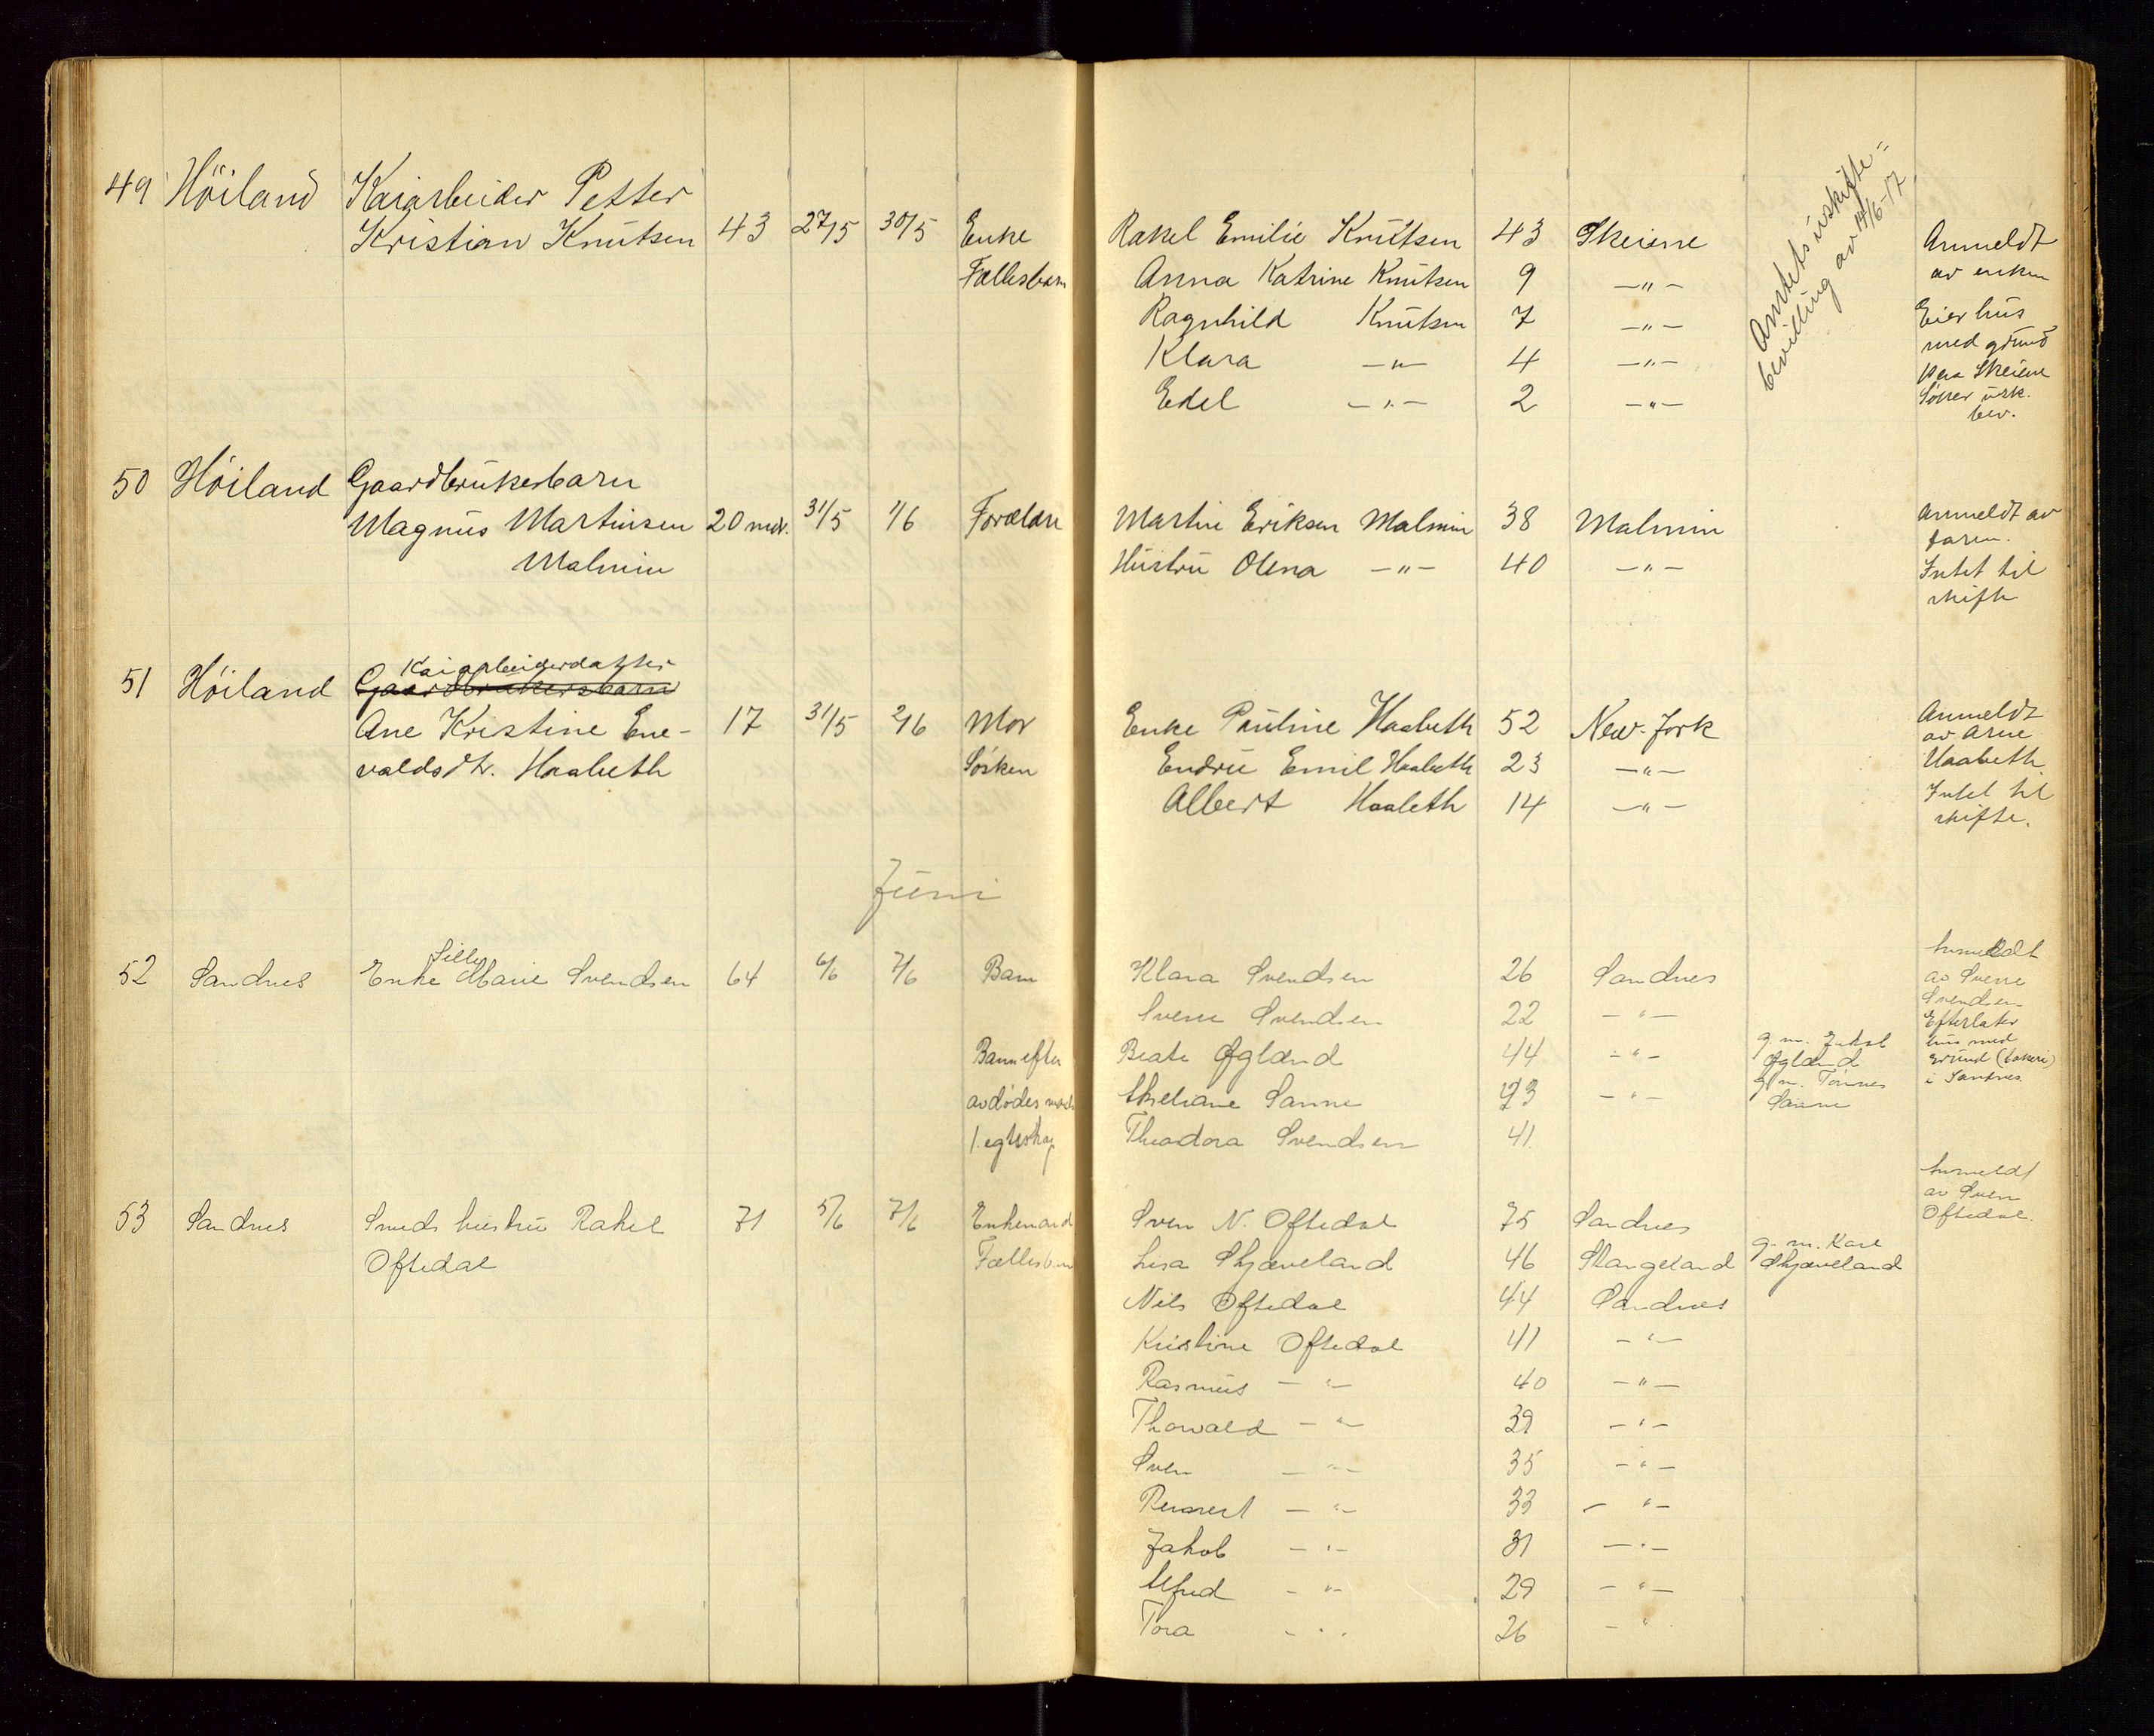 49 Höiland Kaiarbeider Petter
Kristian Knutsen 43 27/5 30/5 Enke Rakel Emilie Knutsen 43 Skeiene Anmeldt
Fællesbarn Anna Katrine Knutsen 9 —"— av enken
Ragnhild Knutsen 7 —"— Eier hus
med grund
Klara —"— 4 —"— paa Skeiene
Edel —"— 2 —"— Söker usk.
bev.
Amtets uskifte=
bevilling av 14/6-17.
50 Höiland Gaardbrukerbarn
Magnus Martinsen 20 mdr. 31/5 1/6 Forældre Martin Eriksen Malmin 38 Malmin Anmeldt av
faren.
Malmin Hustru Olena —"— 40 —"— Intet til
skifte
51 Höiland Kaiarbeiderdatter
Gaardbrukersbarn
Ane Kristine Ene- 17 31/5 2/6 Mor Enke Pauline Haabeth 52 New-York Anmeldt
av Arne
valdsdtr. Haabeth Sösken Endre Emil Haabeth 23 —"— Haabeth
Albert Haabeth 14 —"— Intet til
skifte.
Juni
52 Sandnes Enke Silly Marie Svendsen 64 6/6 7/6 Barn Klara Svendsen 26 Sandnes Anmeldt
av Sverre
Sverre Svendsen 22 —"— Svendsen
Efterlater
Barn efter Beate Øgland 44 —"— g. m. Jakob
Øgland hus med
grund (bakeri)
avdødes mands Skeliane Sanne 43 —"— g. m. Tönnes
Sanne i Sandnes.
1. egteskap Theodora Svendsen 41
53 Sandnes Smeds hustru Rakel 71 5/6 7/6 Enkemand Sven N. Oftedal 75 Sandnes Anmeldt
av Sven
Oftedal.
Oftedal Fællesbarn Lisa Skjæveland 46 Stangeland g. m. Karl
Skjæveland
Nils Oftedal 44 Sandnes
Kristine Oftedal 41 —"—
Rasmus —"— 40 —"—
Thorvald —"— 39 —"—
Sven —"— 35 —"—
Reinert —"— 33 —"—
Jakob —"— 31 —"—
Alfred —"— 29 —"—
Tora —"— 26 —"—